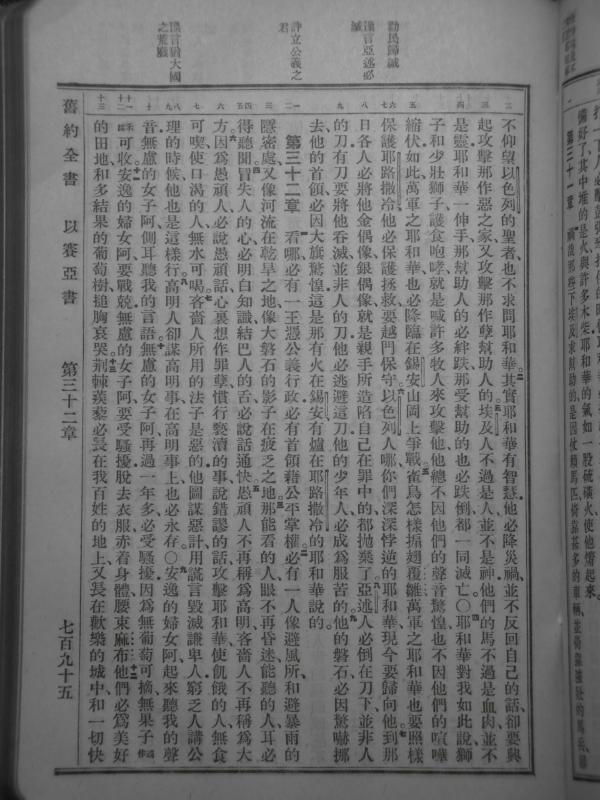 勸民歸誠
謹言亞述必
滅
許立公義之
君
謹言猶大國
之荒廢
第三十一章 禍哉那些下埃及求幫助的是因仗賴馬匹倚靠甚多的車輛並倚靠
不仰望以色列的聖者也不求問耶和華其實耶和華有智慧他必降災禍並不反回自己的話卻要興
起攻擊那作惡之家又攻擊那作孽幫助人的埃及人不過是人並不是神他們的馬不過是血肉並不
是靈耶和華一伸手那幫助人的必絆跌那受幫助的也必跌倒都一同滅亡〇耶和華對我如此說獅
子和少壯獅子護食咆哮就是喊許多牧人來攻擊他他總不因他們的聲音驚惶也不因他們的喧嘩
縮伏如此萬軍之耶和華也必降臨在錫安山岡上爭戰雀鳥怎樣搧翅覆雛萬軍之耶和華也要照樣
保護耶路撒冷他必保護拯救要越門保守以色列人哪你們深深悖逆的耶和華現今要歸向他到那
日各人必將他金偶像銀偶像就是親手所造陷自己在罪中的都拋棄了亞述人必倒在刀下並非人
的刀有刀要將他吞滅並非人的刀他必逃避這刀他的少年人必成爲服苦的他的磐石必因驚嚇挪
去他的首領必因大旗驚惶這是那有火在錫安有爐在耶路撒冷的耶和華說的
第三十二章 看哪必有一王憑公義行政必有首領藉公平掌權必有一人像避風所和避暴雨的
隱密處又像河流在乾旱之地像大磐石的影子在疲乏之地那能看的人眼不再昏迷能聽的人耳必
得聽聞冒失人的心必明白知識結巴人的舌必說話通快愚頑人不再稱爲高明吝嗇人不再稱爲大
方因爲愚頑人必說愚頑話心裏想作罪孽慣行褻瀆的事說錯謬的話攻擊耶和華使飢餓的人無食
可喫使口渴的人無水可喝吝嗇人所用的法子是惡的他圖謀惡計用謊言毀滅謙卑人窮乏人講公
理的時候他也是這樣行高明人卻謀高明事在高明事上也必永存〇安逸的婦女阿起來聽我的聲
音無慮的女子阿側耳聽我的言語無慮的女子阿再過一年多必受騷擾因爲無葡萄可摘無果子
可收安逸的婦女阿要戰兢無慮的女子阿要受騷擾脫去衣服赤着身體腰束麻布他們必爲美好
的田地和多結果的葡萄樹搥胸哀哭荊棘蒺藜必長在我百姓的地上又長在歡樂的城中和一切快
舊約全書 以賽亞書 第三十二章 七百九十五